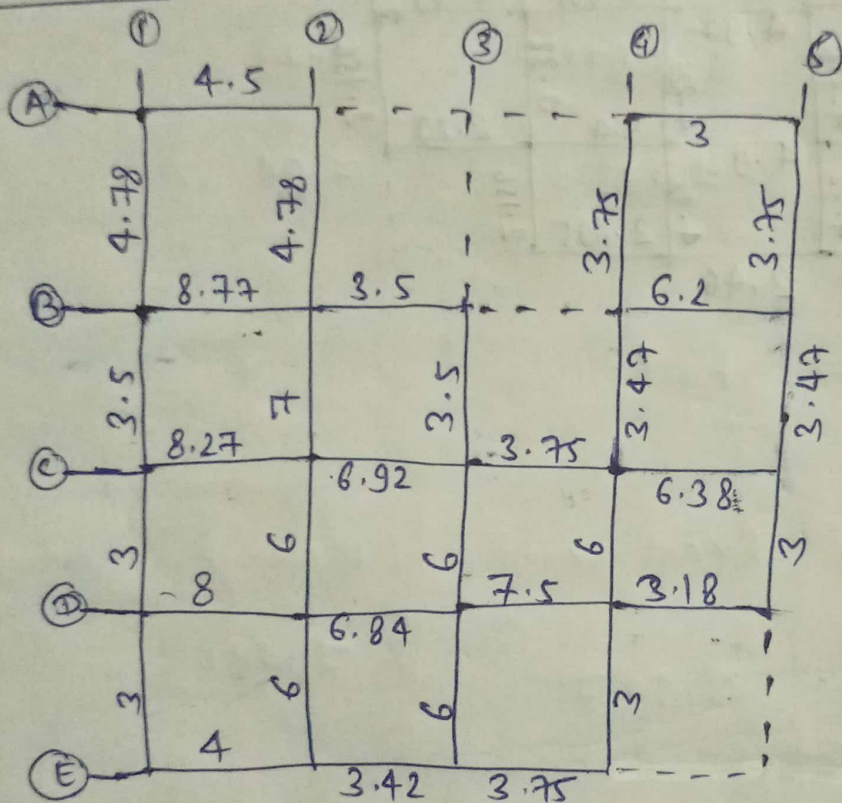 1 2 3 4 5
A 4.5 3
4.78 4.78 3.75 3.75
B 8.77 3.5 6.2
3.5 7 3.5 3.47 3.47
C 8.27 6.92 3.75 6.38
3 6 6 6 3
D 8 6.84 7.5 3.18
3 6 6 3
E 4 3.42 3.75